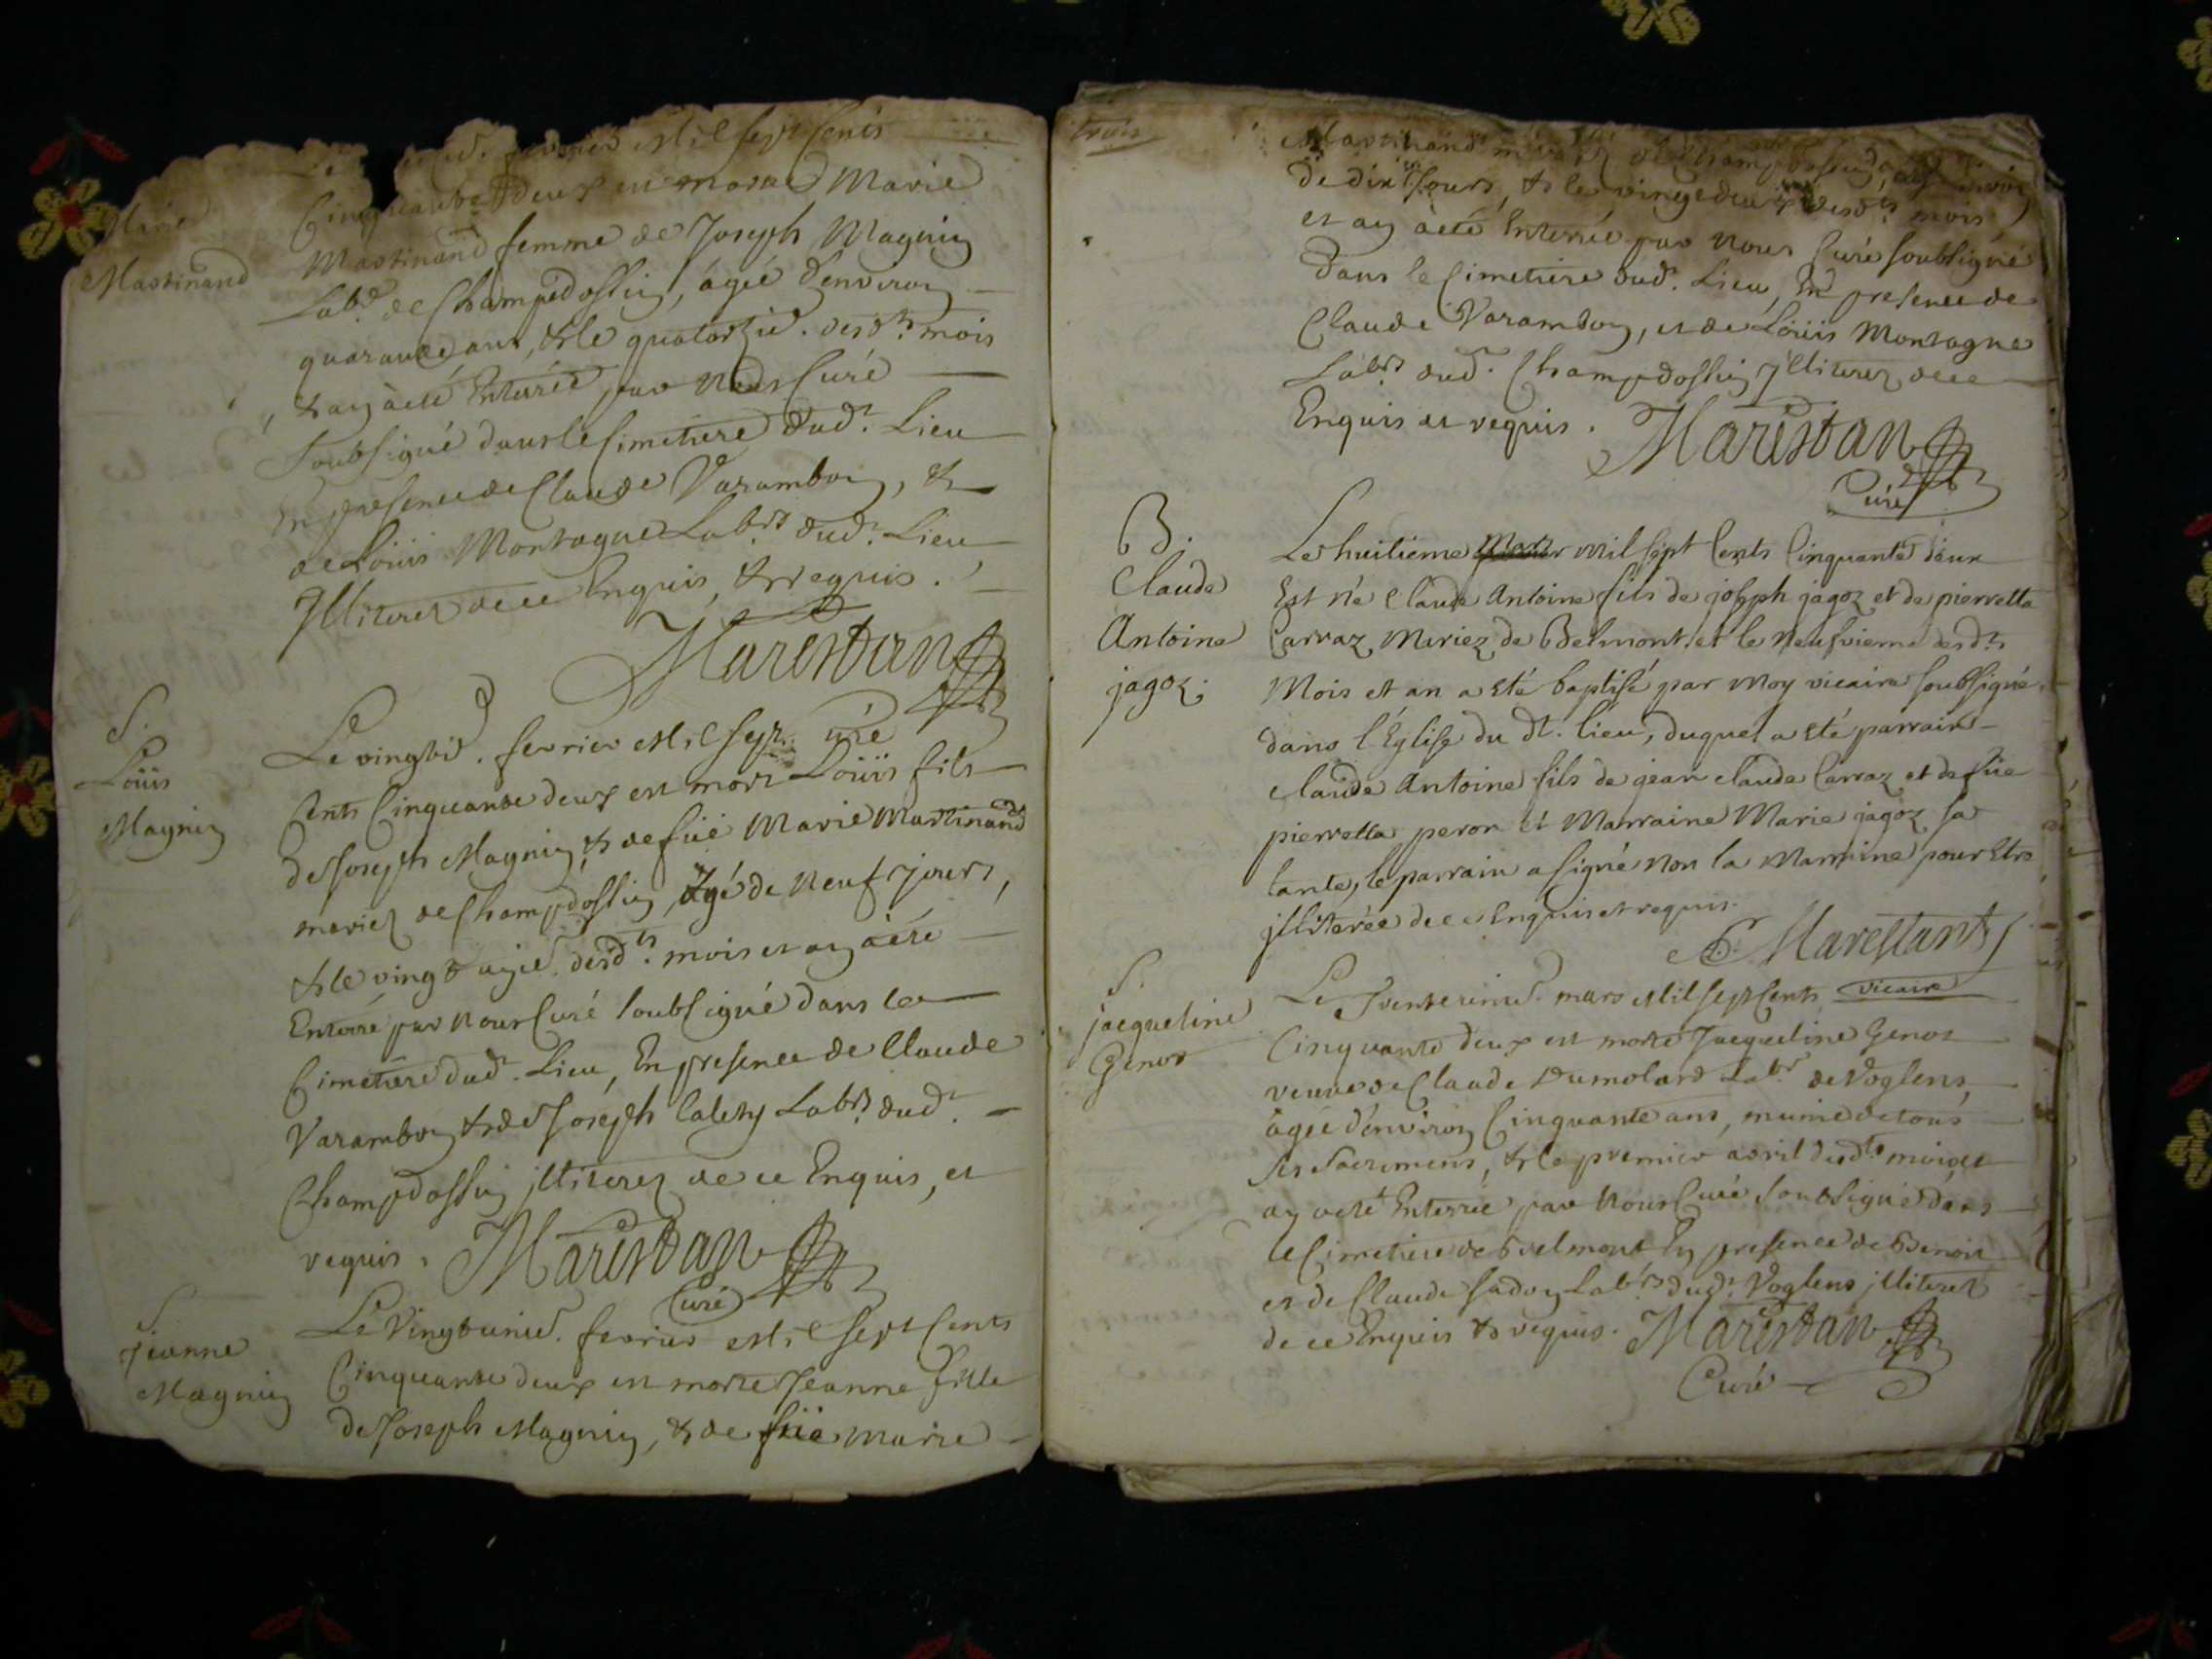 Marie
Martinand
février Mil sept Cents
Cinquante deux est morte Marie
Martinand femme de Joseph Magnin
Labr. de Champdossin, agée d'environ
quarante ans, & le quatorzie. desdts. mois
& an à eté Enterrée par Nous Curé
Soubsigné dans le Cimetiere dudt. Lieu
En presence de Claude Varambon, &
de Loüis Montagne Labrs. dudt. Lieu
Illiterez de ce Enquis, & requis.
Marestan
Curé
S.
Loüis
Magnin
Le vingtie. fevrier Mil sept
Cents Cinquante deux est mort Loüis fils
de Joseph Magnin, & de füe Marie Martinand
mariez de Champdossin, agé de neuf jours,
& le vingt unie. desdts. mois et an à eté
Enterré par Nous Curé soubsigné dans le
Cimetiere dudt. Lieu, En presence de Claude
Varambon & de Joseph Labrs. dudt.
Champdossin illiterez de ce Enquis, et
requis. Marestan
Curé
S.
Jeanne
Magnin
Le Vingt unie. fevrier Mil sept Cents
Cinquante deux est morte Jeanne fille
de Joseph Magnin, & de füe Marie
trois
Martinand mariez de Champdossin,
de dix jours, & le vingt deux desdts. mois
et an à eté Enterrée par Nous Curé soubsigné
dans le Cimetiere dudt. Lieu, En presence de
Claude Varambon, et de Loüis Montagne
Labrs. dudt. Champdossin Illiterez de ce
Enquis et requis. Marestan
Curé
B.
Claude
Antoine
jagoz.
Le huitieme Mars mil sept Cents Cinquante deux
Est né Claude Antoine fils de joseph jagoz et de pierretta
Carraz Mariez de Belmont et le neufvieme desdts.
Mois et an a eté baptisé par Moy vicaire soubsigné
dans l'Eglise du dt. lieu, duquel a eté parrain
Claude Antoine fils de jean claude Carraz et de füe
pierretta peron et Marraine Marie jagoz sa
tante, le parrain a signé non la Marraine pour Etre
jlliterée de ce Enquis et requis.
Marestant
vicaire
S.
jacqueline
Genot
Le trentunie. mars Mil sept Cents
Cinquante deux est morte Jacqueline Genot
veuve de Claude Dumolard Labr. de Voglens,
agée d'environ Cinquante ans, munie de tous
ses Sacremens, & le premier avril desdts mois et
an a eté Enterrée par Nous Curé soubsigné dans
le Cimetiere de Belmont En presence de Benoit
et de Claude Labrs. dudt. Voglens jlliterez
de ce Enquis & requis. Marestan
Curé